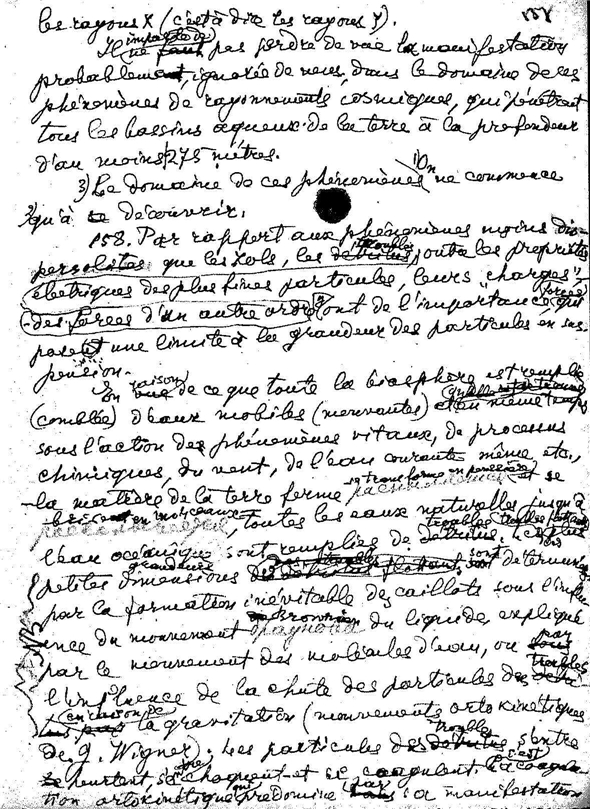 les rayons X (c'est à dire les rayons γ). 158
Il ne faut impossible pas perdre de vue la manifestation
probablement, ignorée de nous, dans le domaine de ces
phénomènes de rayonnements cosmiques, qui pénètrent
tous les bassins aqueux de la terre à la profondeur
d'au moins 275 mètres.
3) Le domaine de ces phénomènes On ne commence
qu'à le découvrir.
158. Par rapport aux phénomènes moins dis-
persoïdes que les sols, les detritus troubles, outre les propriétés
électriques des plus fines particules, leurs "charges",
des forces d'un autre ordre ont de l'importance, forces qui
posent une limite à la grandeur des particules en sus-
pension.
En vue raison de ce que toute la biosphère est remplie
(comblée) d'eaux mobiles (mouvantes) et en même temps
sous l'action des phénomènes vitaux, de processus
chimiques, du vent, de l'eau courante même etc.,
la matière de la terre ferme se transforme en poussière et se
brise en morceaux, toutes les eaux naturelles jusqu'à
l'eau océanique sont remplies de detritus. troubles Les plus
petites dimensions grandeurs sont déterminées
par la formation inévitable des caillots sous l'influ-
ence du mouvement Brownien du liquide, expliqué
par le mouvement des molécules d'eau, ou par
l'influence de la chute des particules des troubles
en raison de la gravitation (mouvements ortokinétiques
de G. Wigner). Les particules des detritus troubles s'entre
heurtent choquent et se coagulent. C'est la coagula-
tion ortokinétique qui prédomine par la manifestation